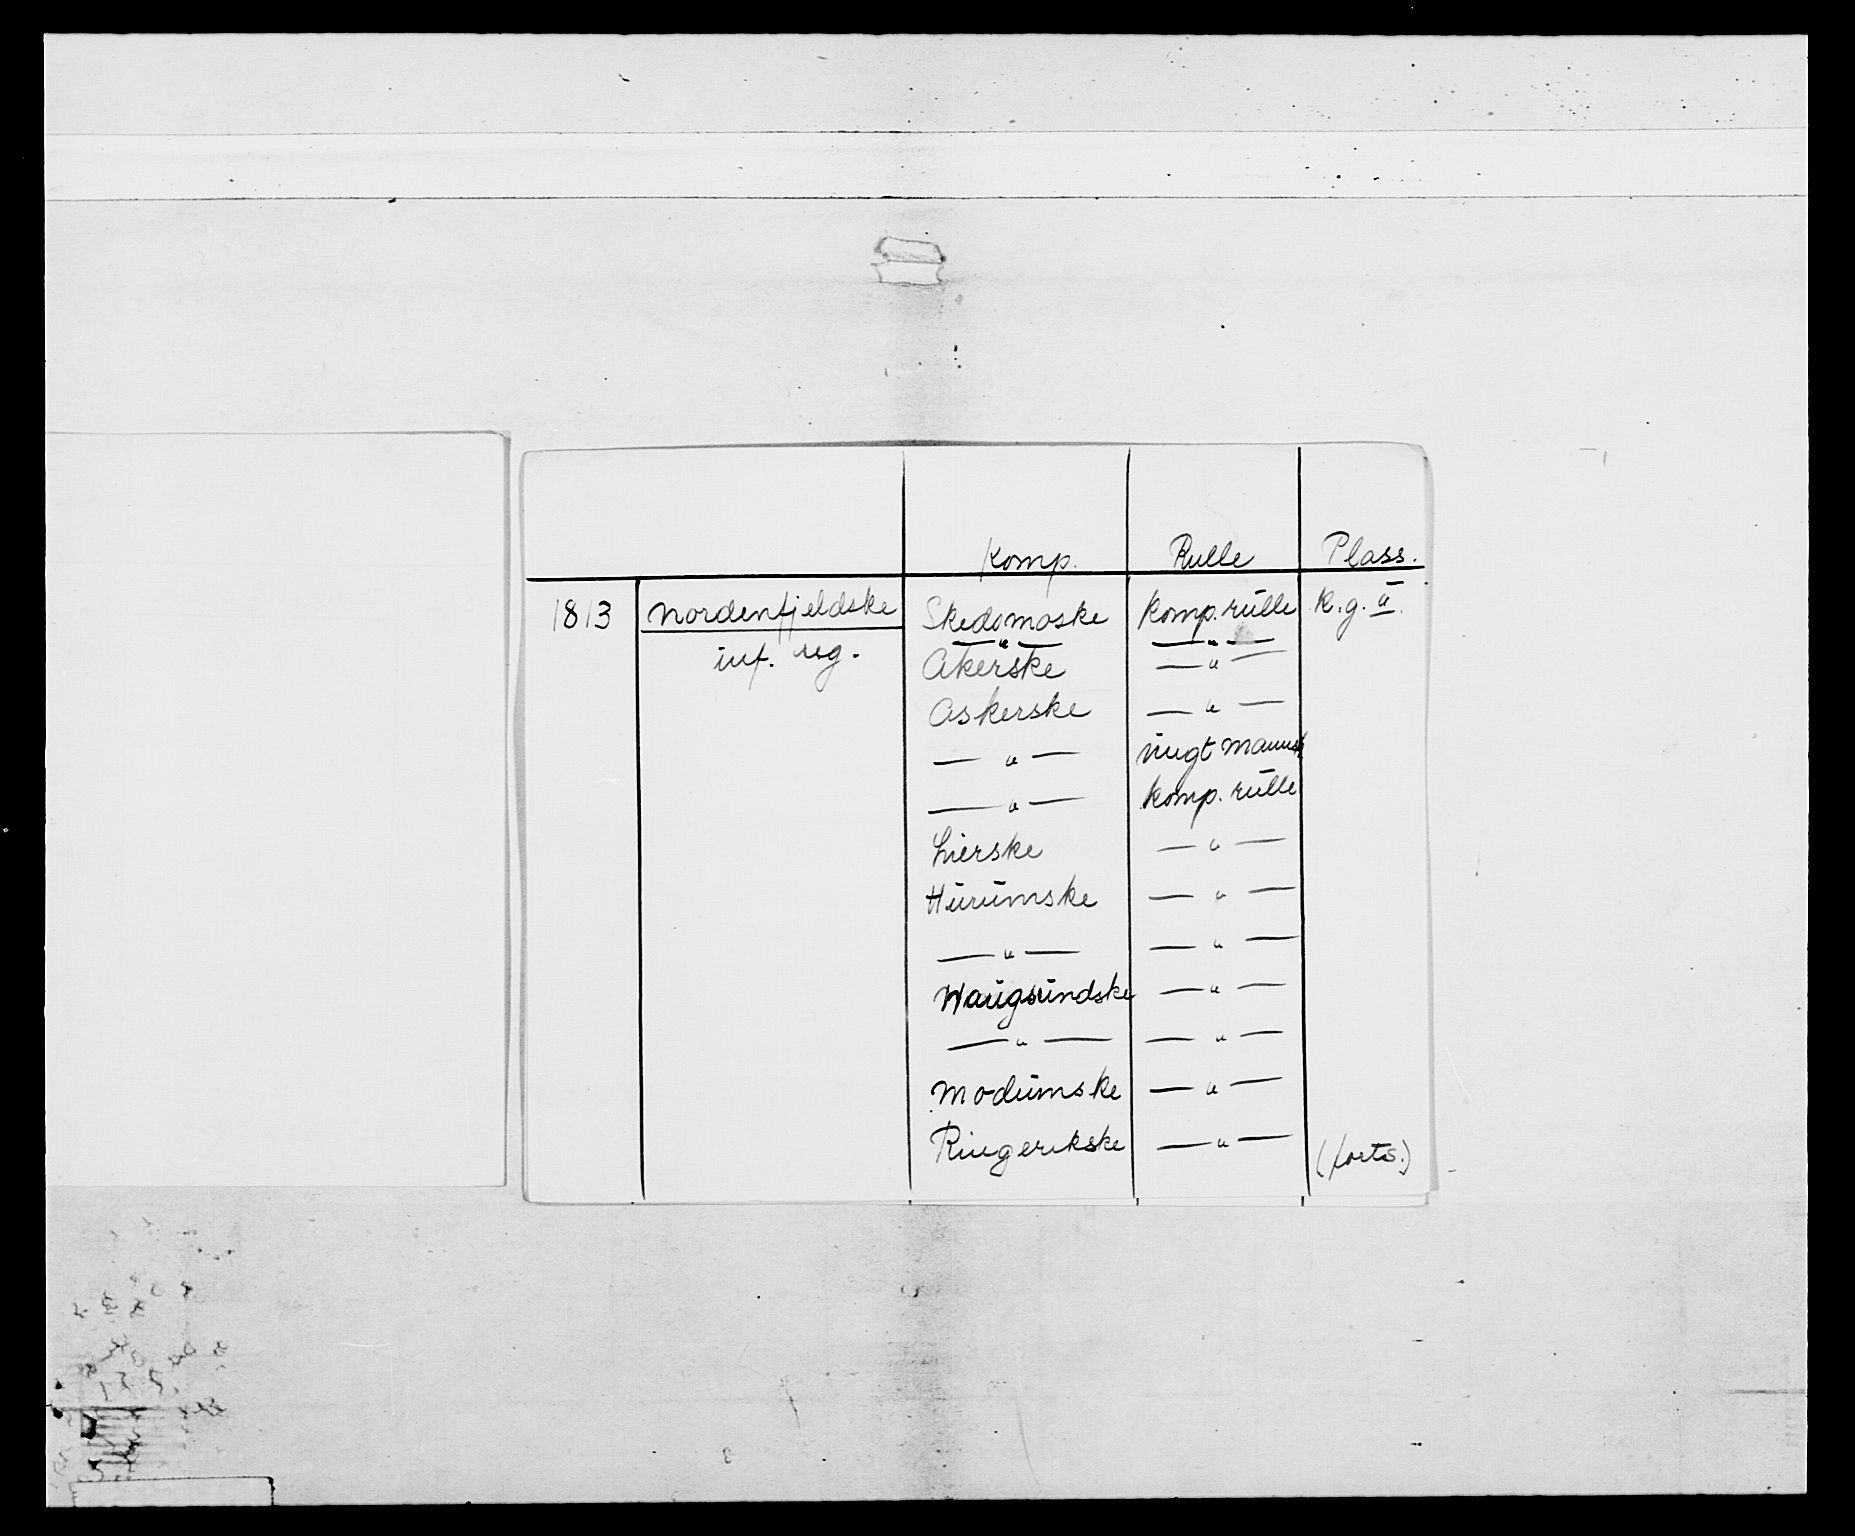 Komp. Rulle Plass.
1813 Nordenfjeldske Skedsmoske Komp. rulle K.g. II.
inf. reg. — " — — " —
Akerske — " —
Askerske — " —
— " — ungt mannsk
— " — Komp. rulle
Lierske — " —
Hurumske — " —
— " — — " —
Haugsundske — " —
— " — — " —
Modumske — " —
Ringerikske — " — (forts.)